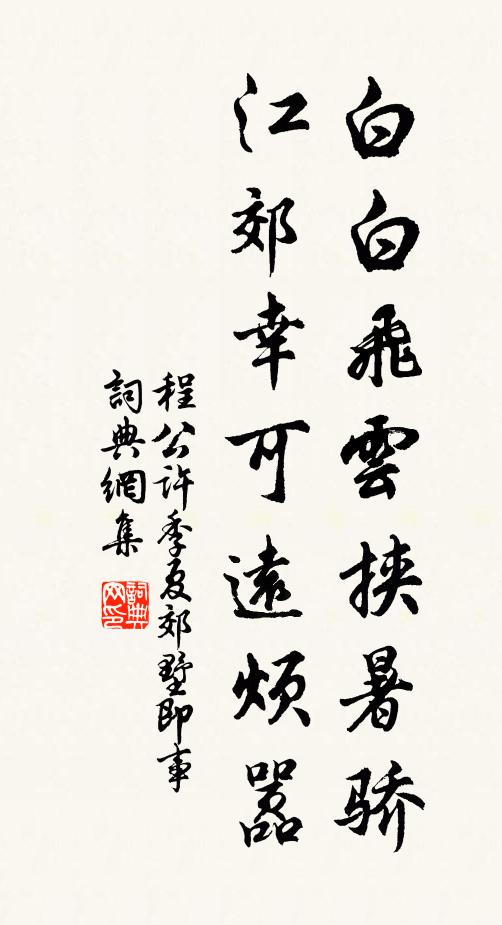 白白飛雲挾暑骄
江郊幸可遠煩嚣
程公許季夏郊墅即事
詞典網集
詞典网印